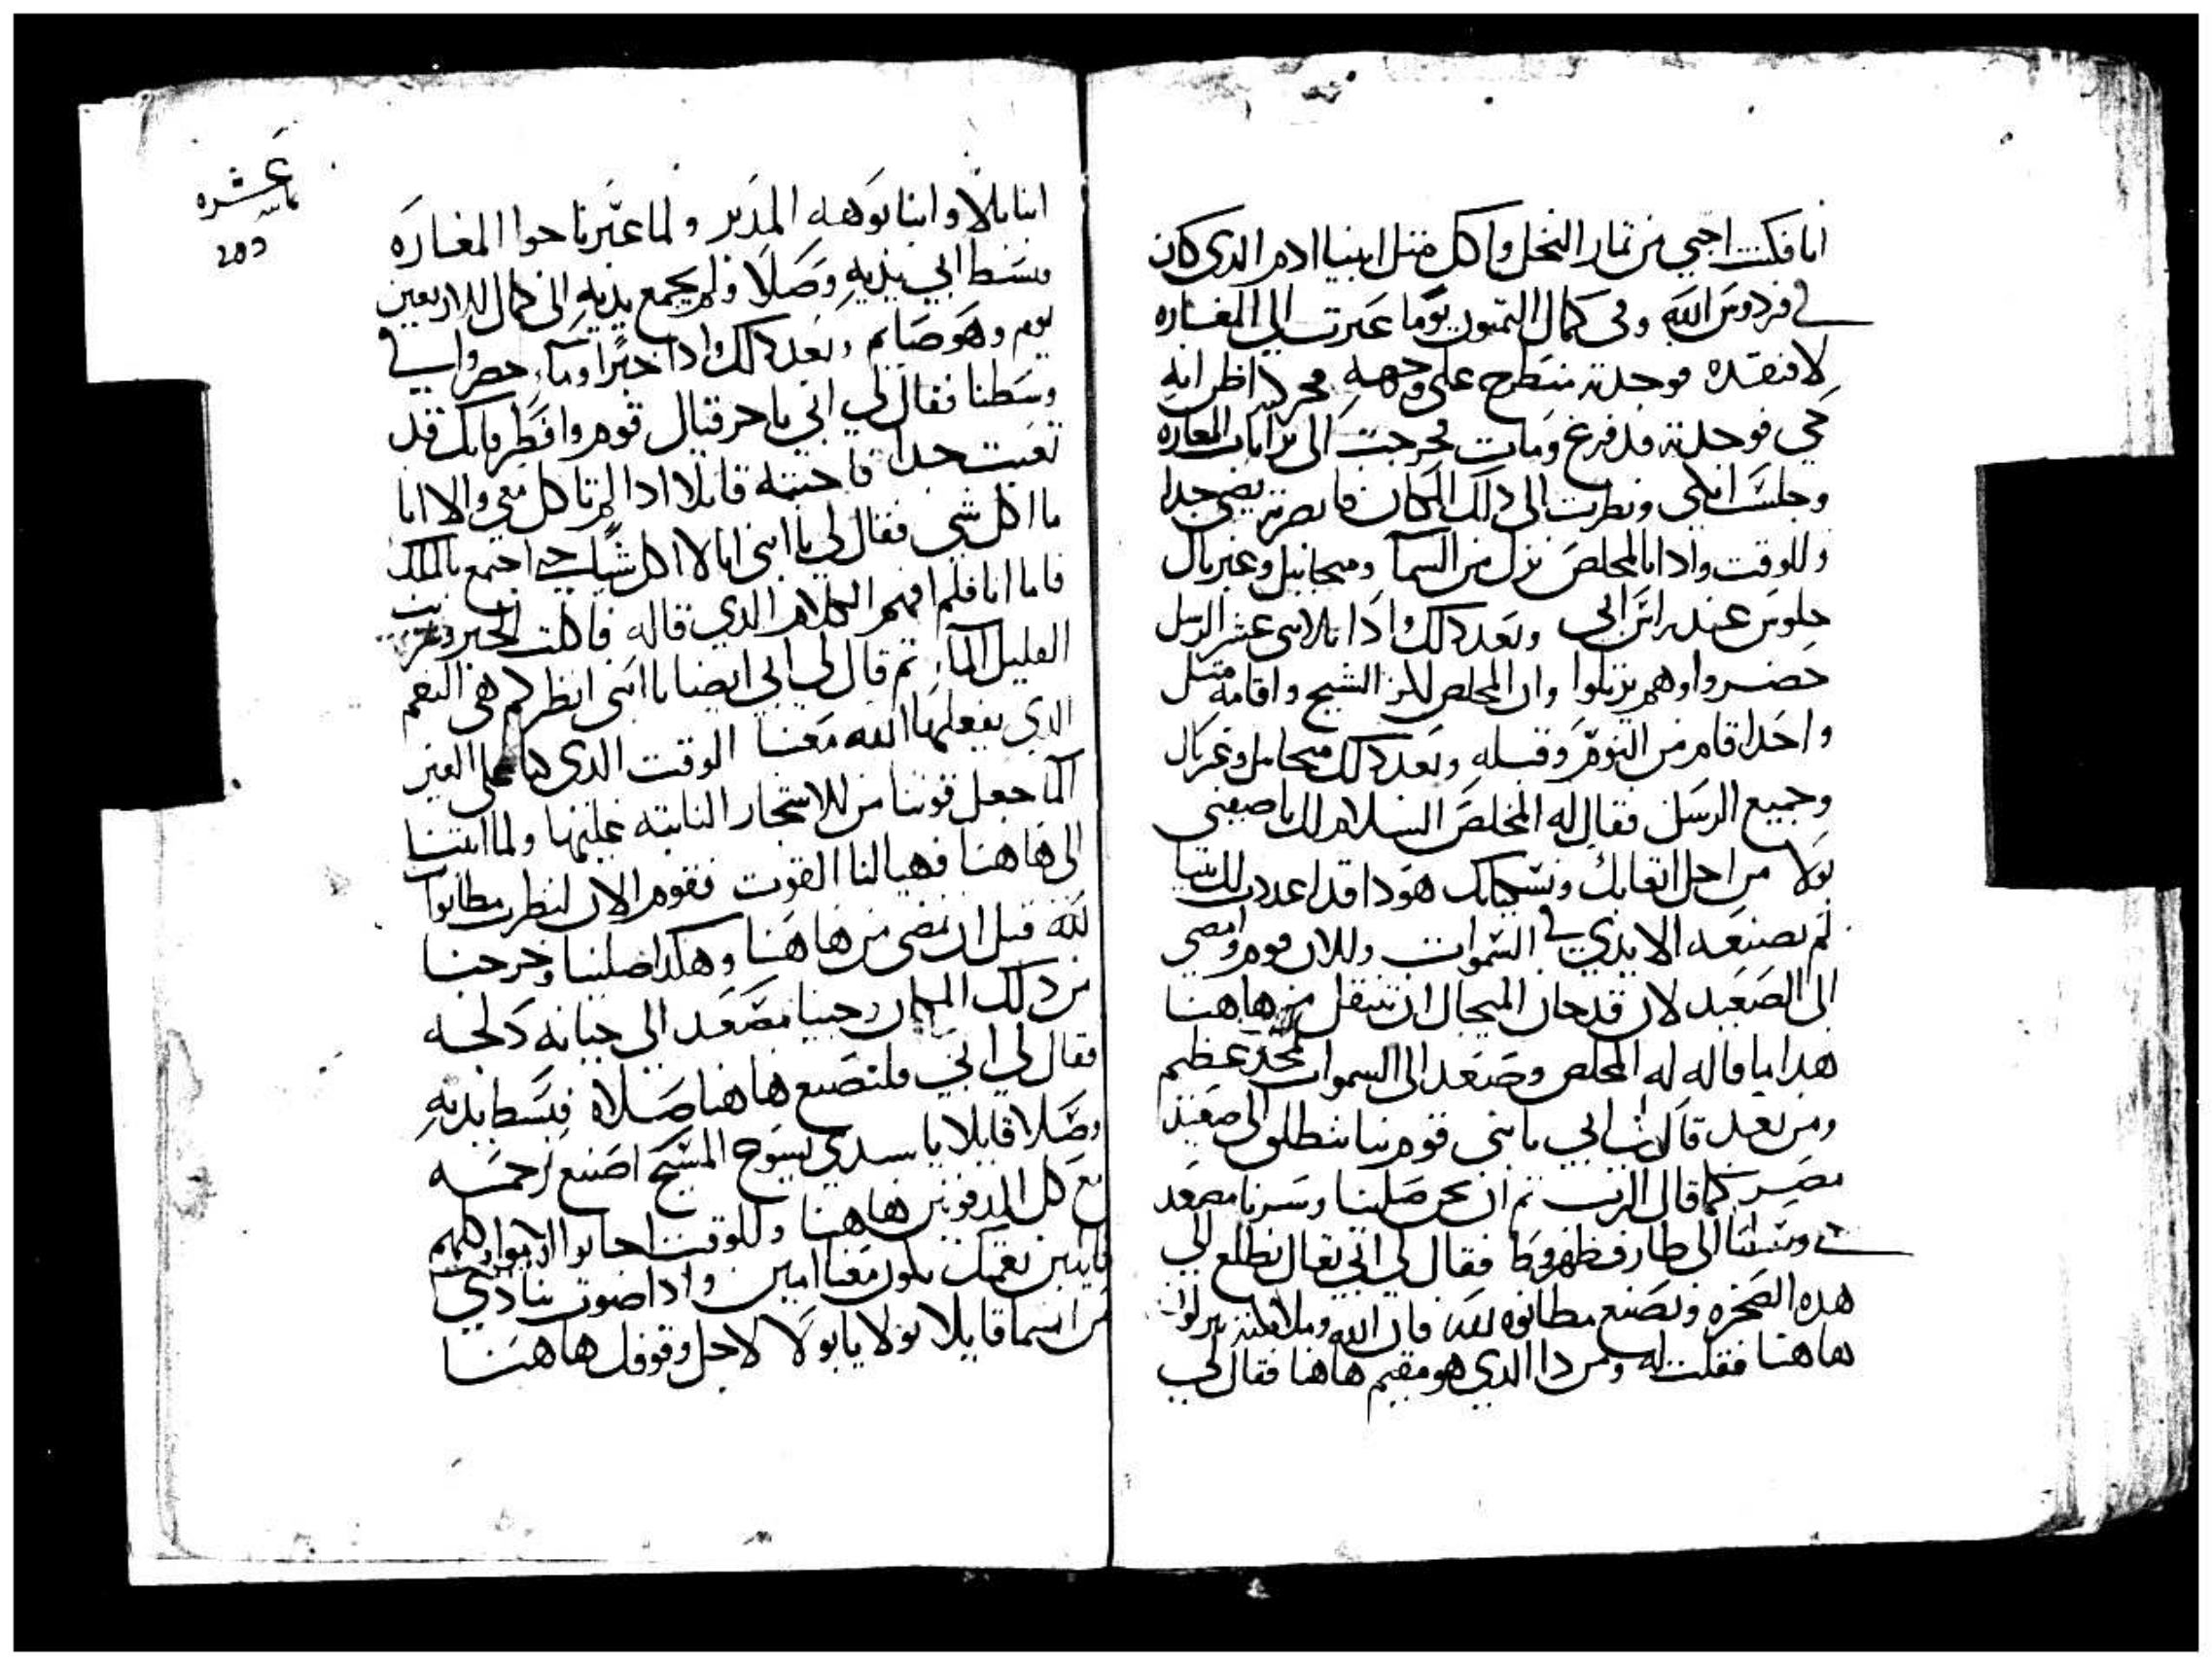 انا فكنت اجي من تمار النخل واكل متل ابينا ادم الدي كان
في فردوس الله وفي كمال التمنون يوما عبرت الي المغاره
لافتقده فوجدته منطرح علي وجهه فحركته اظن انه
حي فوجدته قد فرغ ومات فخرجت الي برا باب المغاره
وجلست ابكي ونظرت الي دلك المكان فابصرته يضي جدا
وللوقت وادا بالمخلص نزل من السما وميخاييل وغبريال
جلوس عند راس ابي وبعد دلك وادا بالاتني عشر الرسل
حضروا وهم يرتلوا وان المخلص للكز الشيخ واقامه متل
واحدا قام من النوم وقبله وبعد دلك ميخاييل وغبريال
وجميع الرسل فقال له المخلص السلام لك يا صفيي
بولا من اجل اتعابك ونسكياتك هودا قد اعددت لك بيتا
لم تصنعه الايدي في السموات وللان قوم وامضي
الي الصعيد لان قد حان المجال ان تنتقل من هاهنا
هدا ما قاله له المخلص وصعد الي السموات بمجد عظيم
ومن بعد قال لي ابي يا ابني قوم بنا ننطلق الي صعيد
مصر كما قال الرب تم ان نحن صلينا وسرنا مصعد
الي طارف فقال لي ابي تعال نطلع الي
هده الصخره ونصنع مطانوه لله فان الله وملايكته نزلوا
هاهنا فقلت له ومن دا الدي هو مقيم هاهنا فقال لي
عشره
انبا بللا وانبا بوهه المدبر ولما عبرنا جوا المغاره
فبسط ابي يديه وصلا ولم يجمع يديه الي كمال الاربعين
يوم وهو صايم وبعد دلك وادا خبزا وماء حضروا في
وسطنا فقال لي ابي يا حزقيال قوم وافطر فانك قد
تعبت جدا فاجبته قايلا ادا لم تاكل معي والا انا
ما اكل شي فقال لي يا ابني انا لا اكل شيا حتي اجتمع بالملك
فاما انا فلم افهم الكلام الدي قاله فاكلت الخبز وشربت
القليل الماء تم قال لي ابي ايضا يا ابني انظر كم هي النعم
الدي يفعلها الله معنا الوقت الدي كنا علي العين
الما جعل قوتنا من الاشجار النابته عليها ولما اتينا
الي هاهنا فهيا لنا القوت فقوم الان لنضرب مطانوات
لله قبل ان نمضي من هاهنا وهكدا صلينا وخرجنا
من دلك المكان وجينا مصعد الي جبانه دلجه
فقال لي ابي فلنصنع هاهنا صلاه فبسط يديه
وصلا قايلا يا سيدي يسوع المسيح اصنع رحمه
مع كل المدفونين هاهنا وللوقت اجابوا الاموات كلهم
قايلين نعمتك تكون معنا امين وادا صوت ينادي
من السما قايلا بولا يا بولا لاجل وقوفك هاهنا